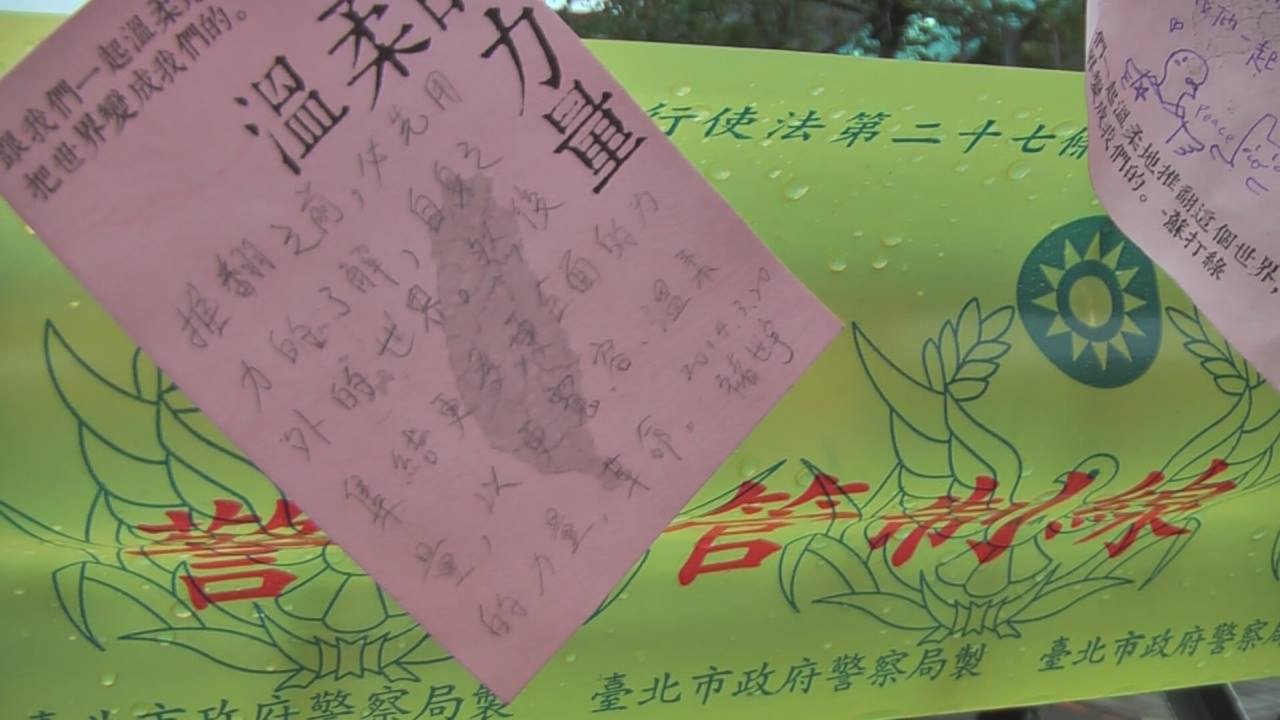 溫柔的力量
跟我們一起溫柔
把世界變成我們的。
推翻之前，必先用
力的了解，自身之
外的世界。然後
集結更為更全面的力
量，以更寬容、溫柔
的力量，革命。
2014.3.20
行使法第二十七條
們一起溫柔地推翻這個世界，
變成我們的。-蘇打綠
一起
Peace
警
管制線
臺北市政府警察局製
臺北市政府警察局製
臺北市政府警察